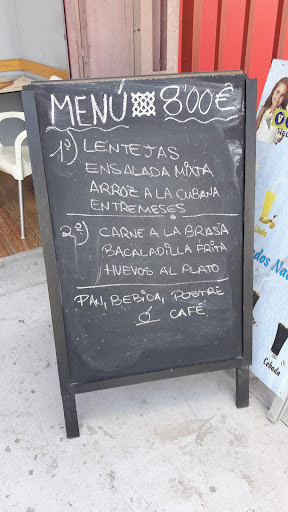 MENÚ 8'00€
1º) LENTEJAS
ENSALADA MIXTA
ARROZ A LA CUBANA
ENTREMESES
2º) CARNE A LA BRASA
BACALADILLA FRITA
HUEVOS AL PLATO
PAN, BEBIDA, POSTRE
Ó CAFÉ
Cebada